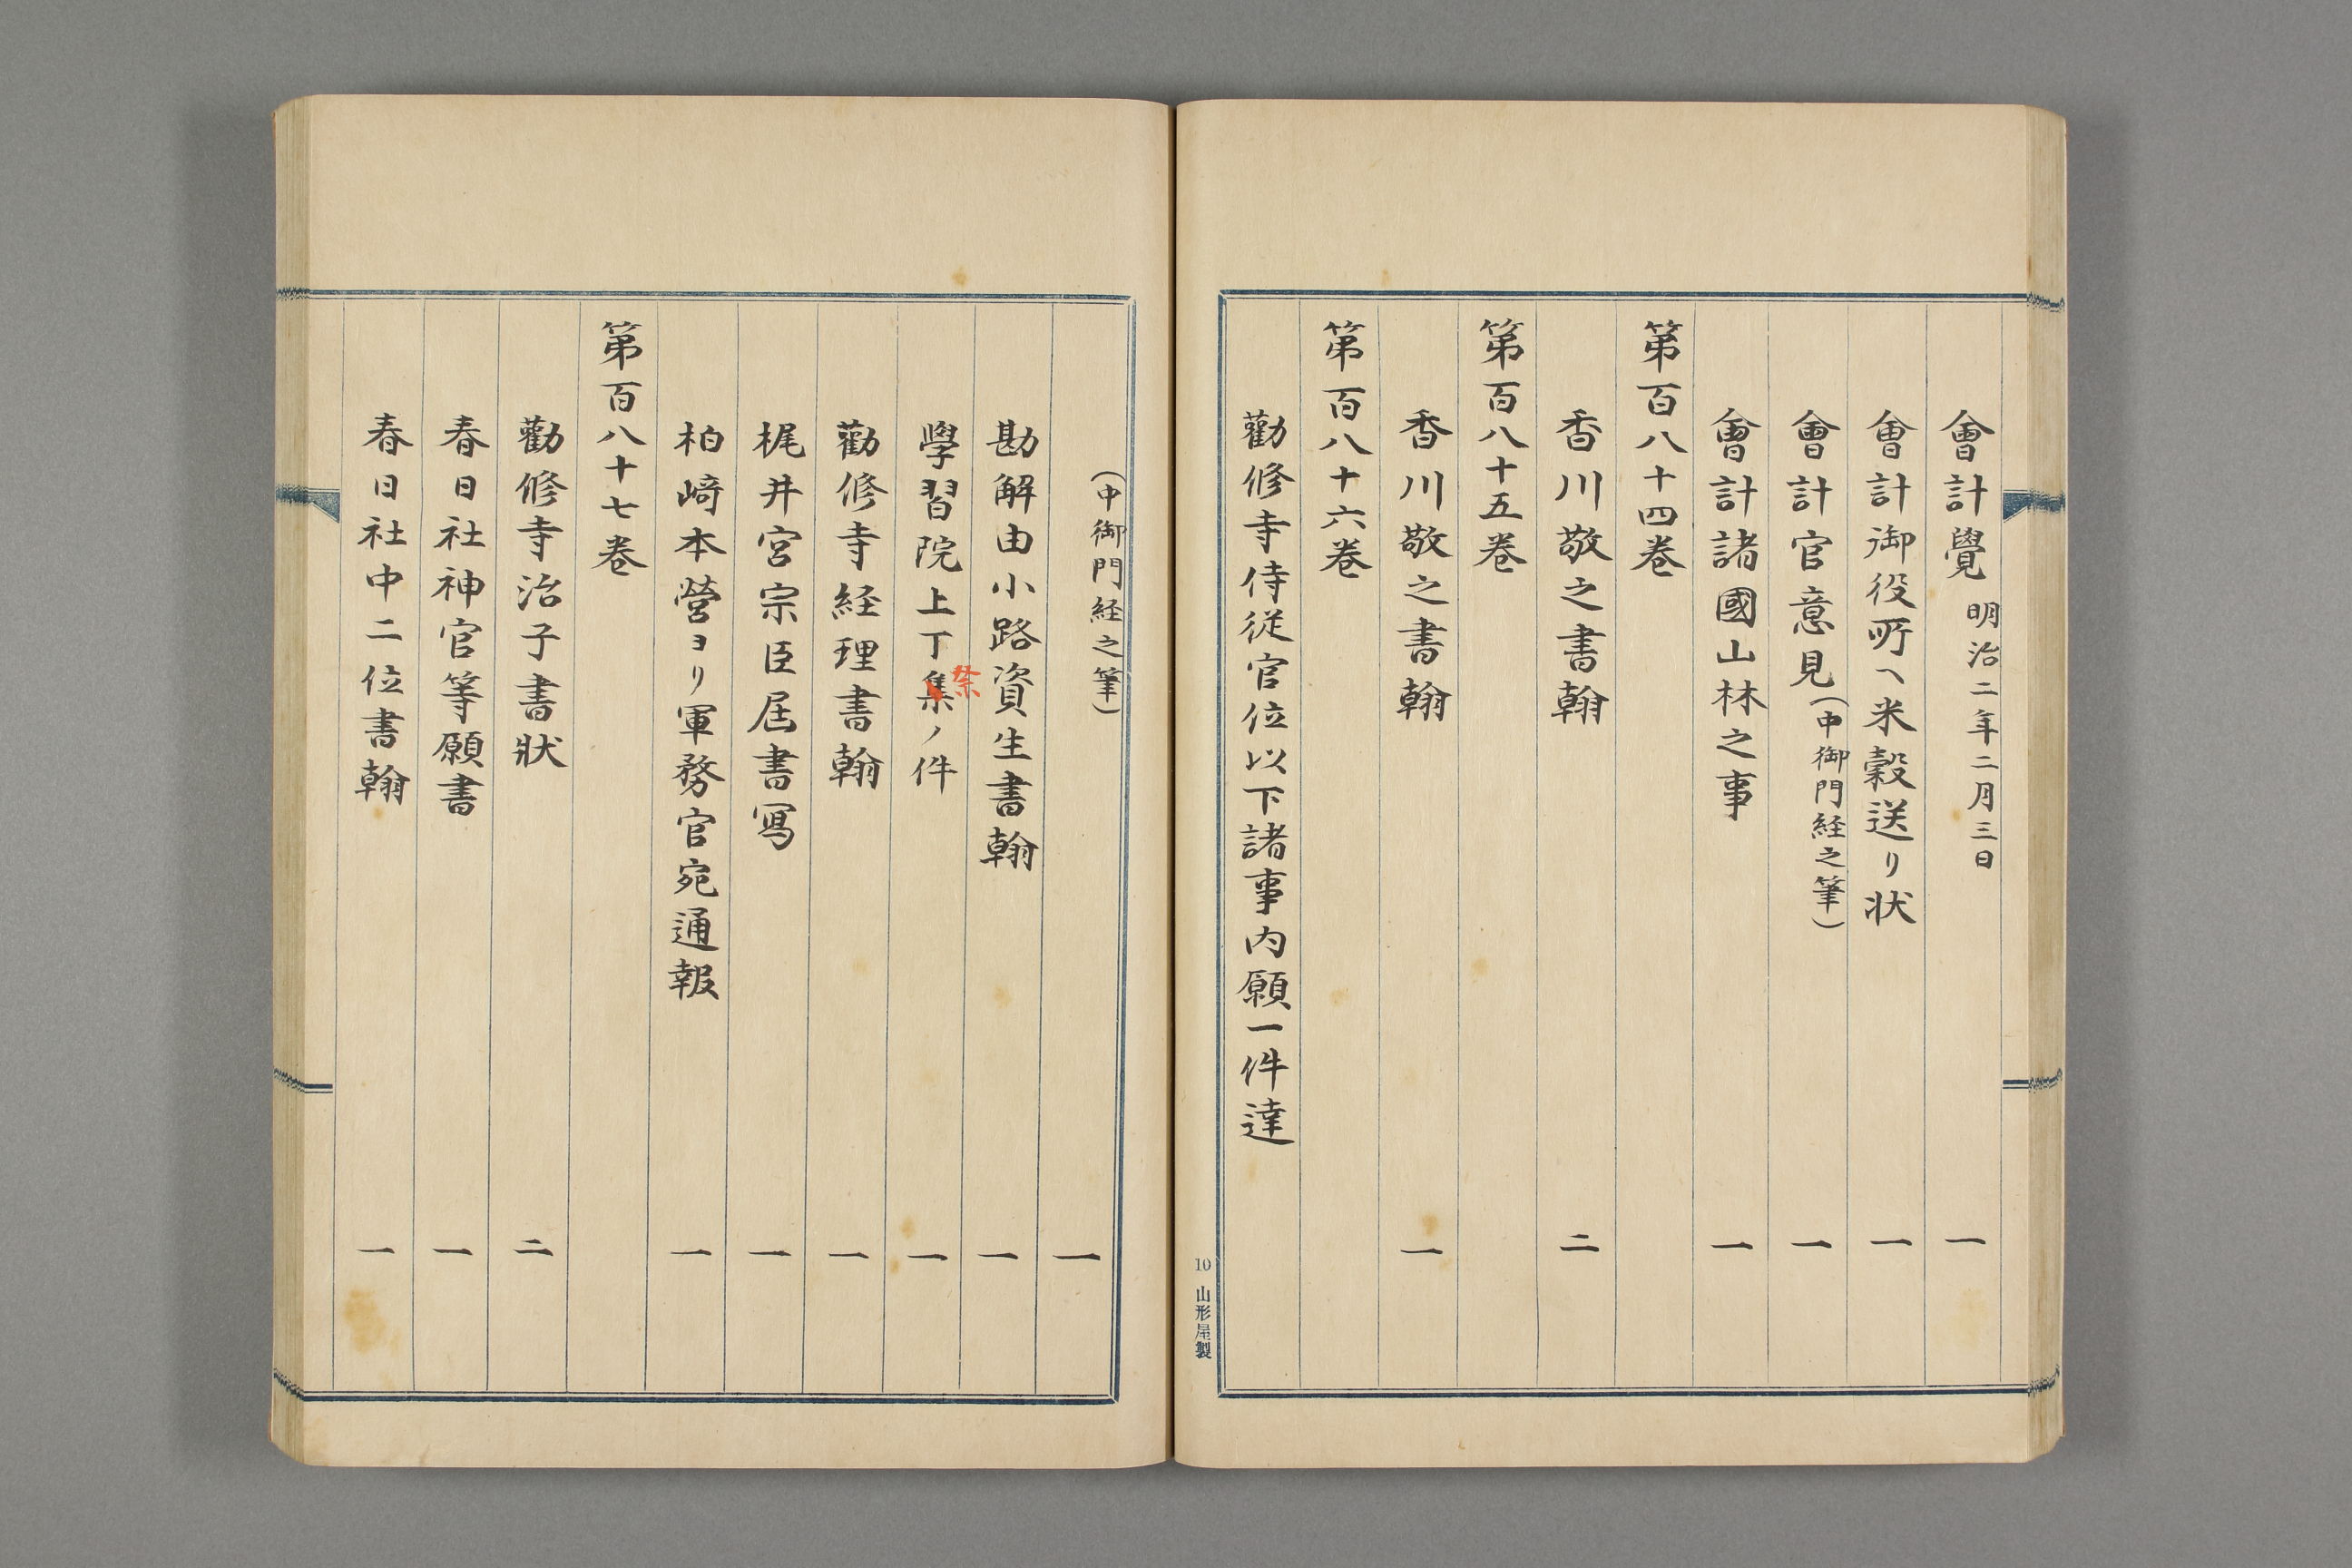 會計覺 明治二年二月三日 一
會計御役所ヘ米穀送リ状 一
會計官意見(中御門経之筆) 一
會計諸國山林之事 一
第百八十四巻
香川敬之書翰 二
第百八十五巻
香川敬之書翰 一
第百八十六巻
勸修寺侍従官位以下諸事内願一件達
10 山形屋製
(中御門経之筆) 一
勘解由小路資生書翰 一
學習院上丁集ノ件 一
祭
勸修寺経理書翰 一
梶井宮宗臣届書寫 一
柏﨑本營ヨリ軍務官宛通報 一
第百八十七巻
勸修寺治子書狀 二
春日社神官等願書 一
春日社中二位書翰 一